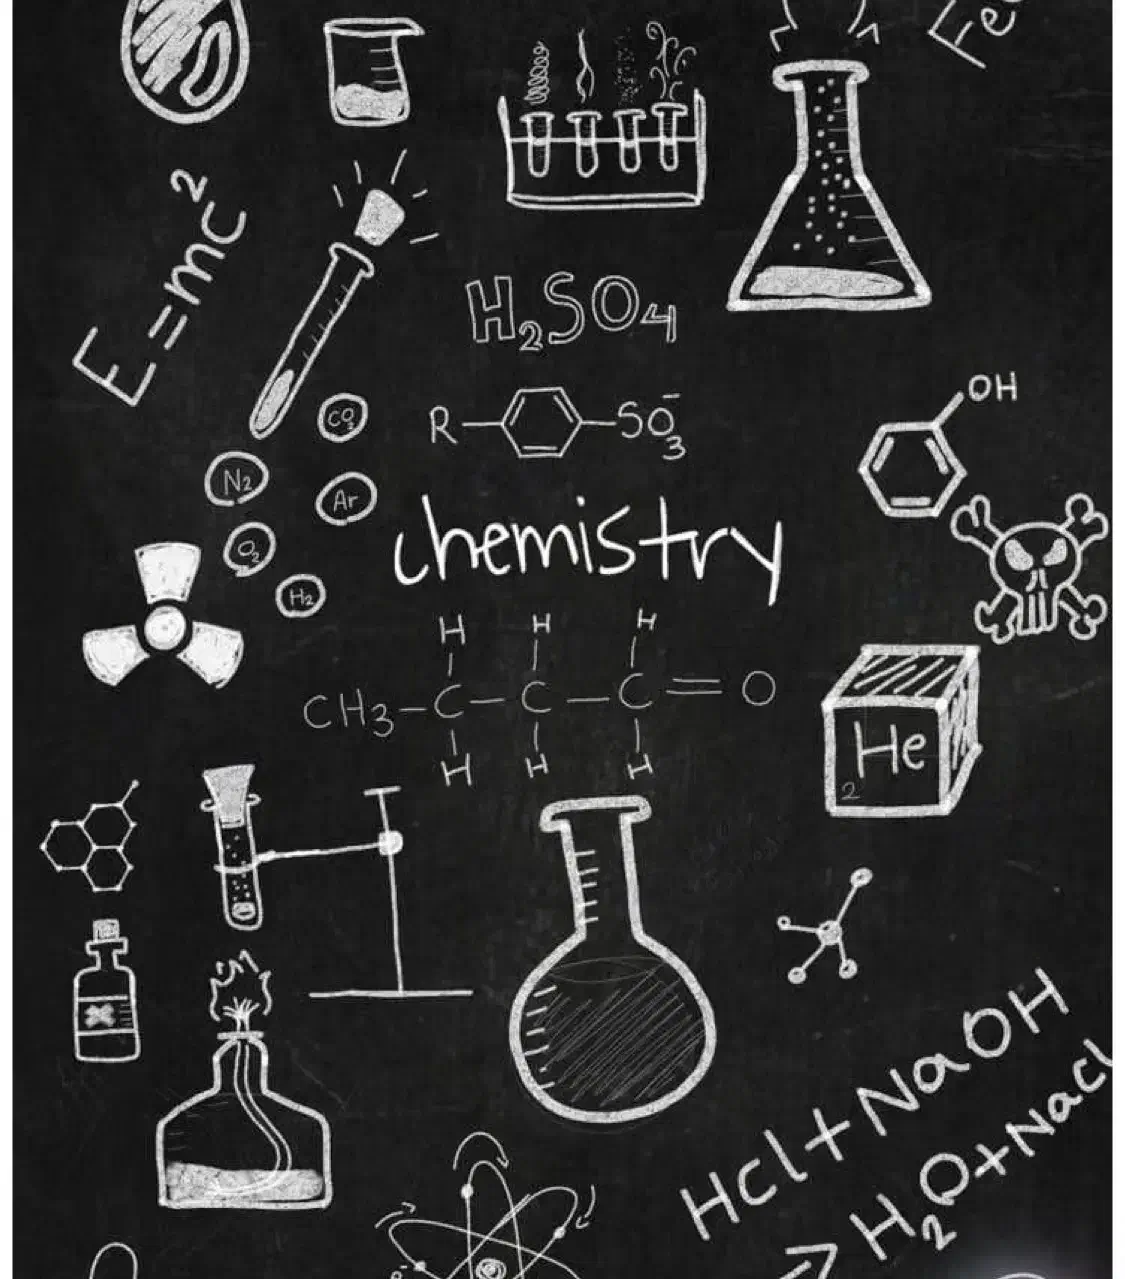 E=mc²
H₂SO₄
R
SO₃⁻
OH
CO₃
N₂
Ar
O₂
H₂
chemistry
H H H
CH₃-C-C-C=O
H H H
He
2
Hcl+NaOH
→H₂O+Nacl
e⁻